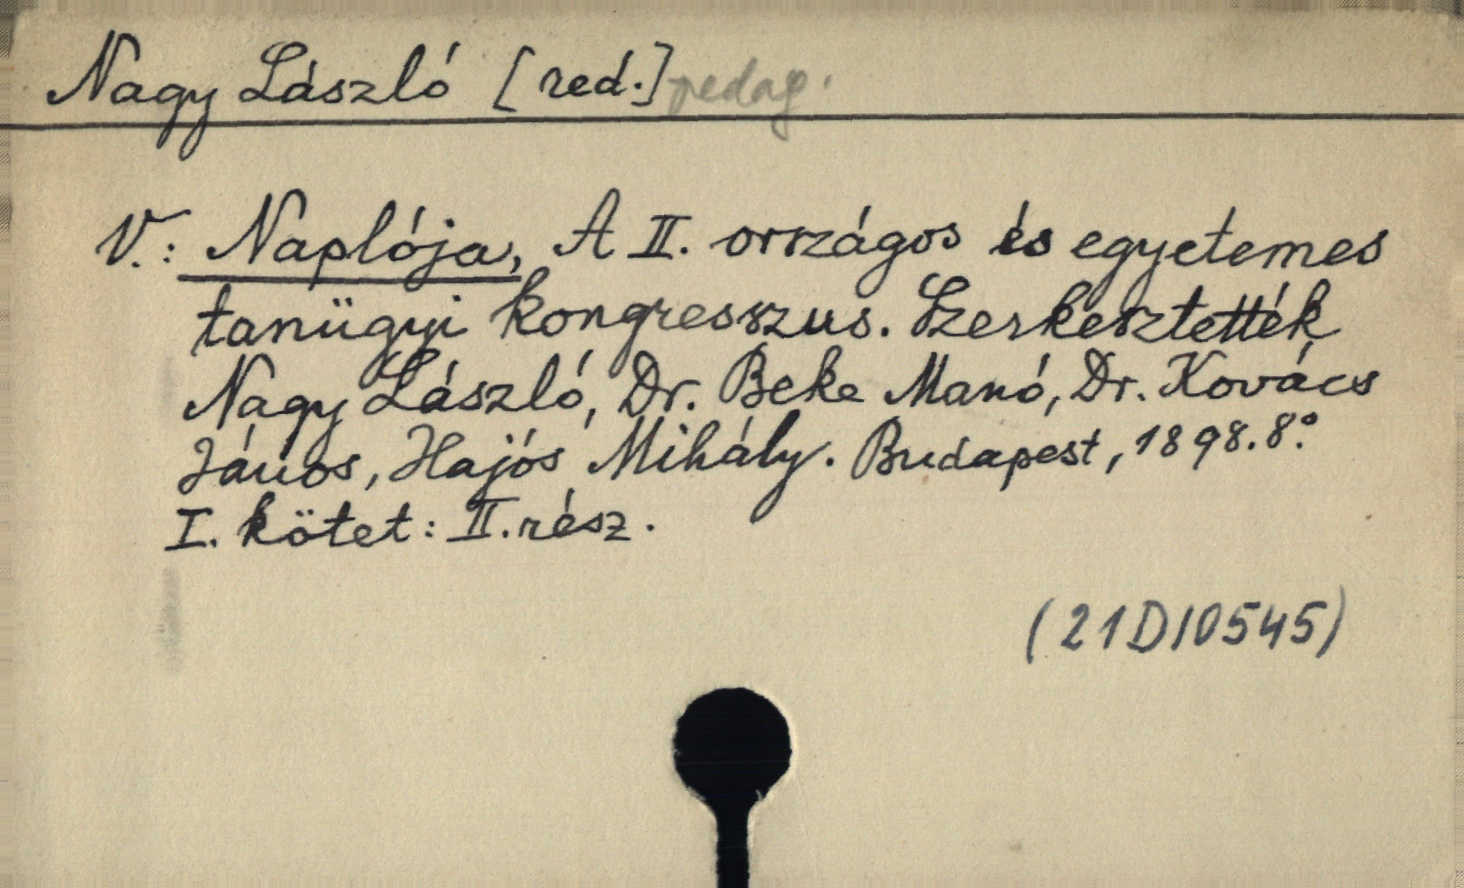 Nagy László [red.] pedag.
V.: Naplója, A II. országos és egyetemes
tanügyi kongresszus. Szerkesztették
Nagy László, Dr. Beke Manó, Dr. Kovács
János, Hajós Mihály. Budapest, 1898. 8.°
I. kötet: II. rész.
(21D10545)